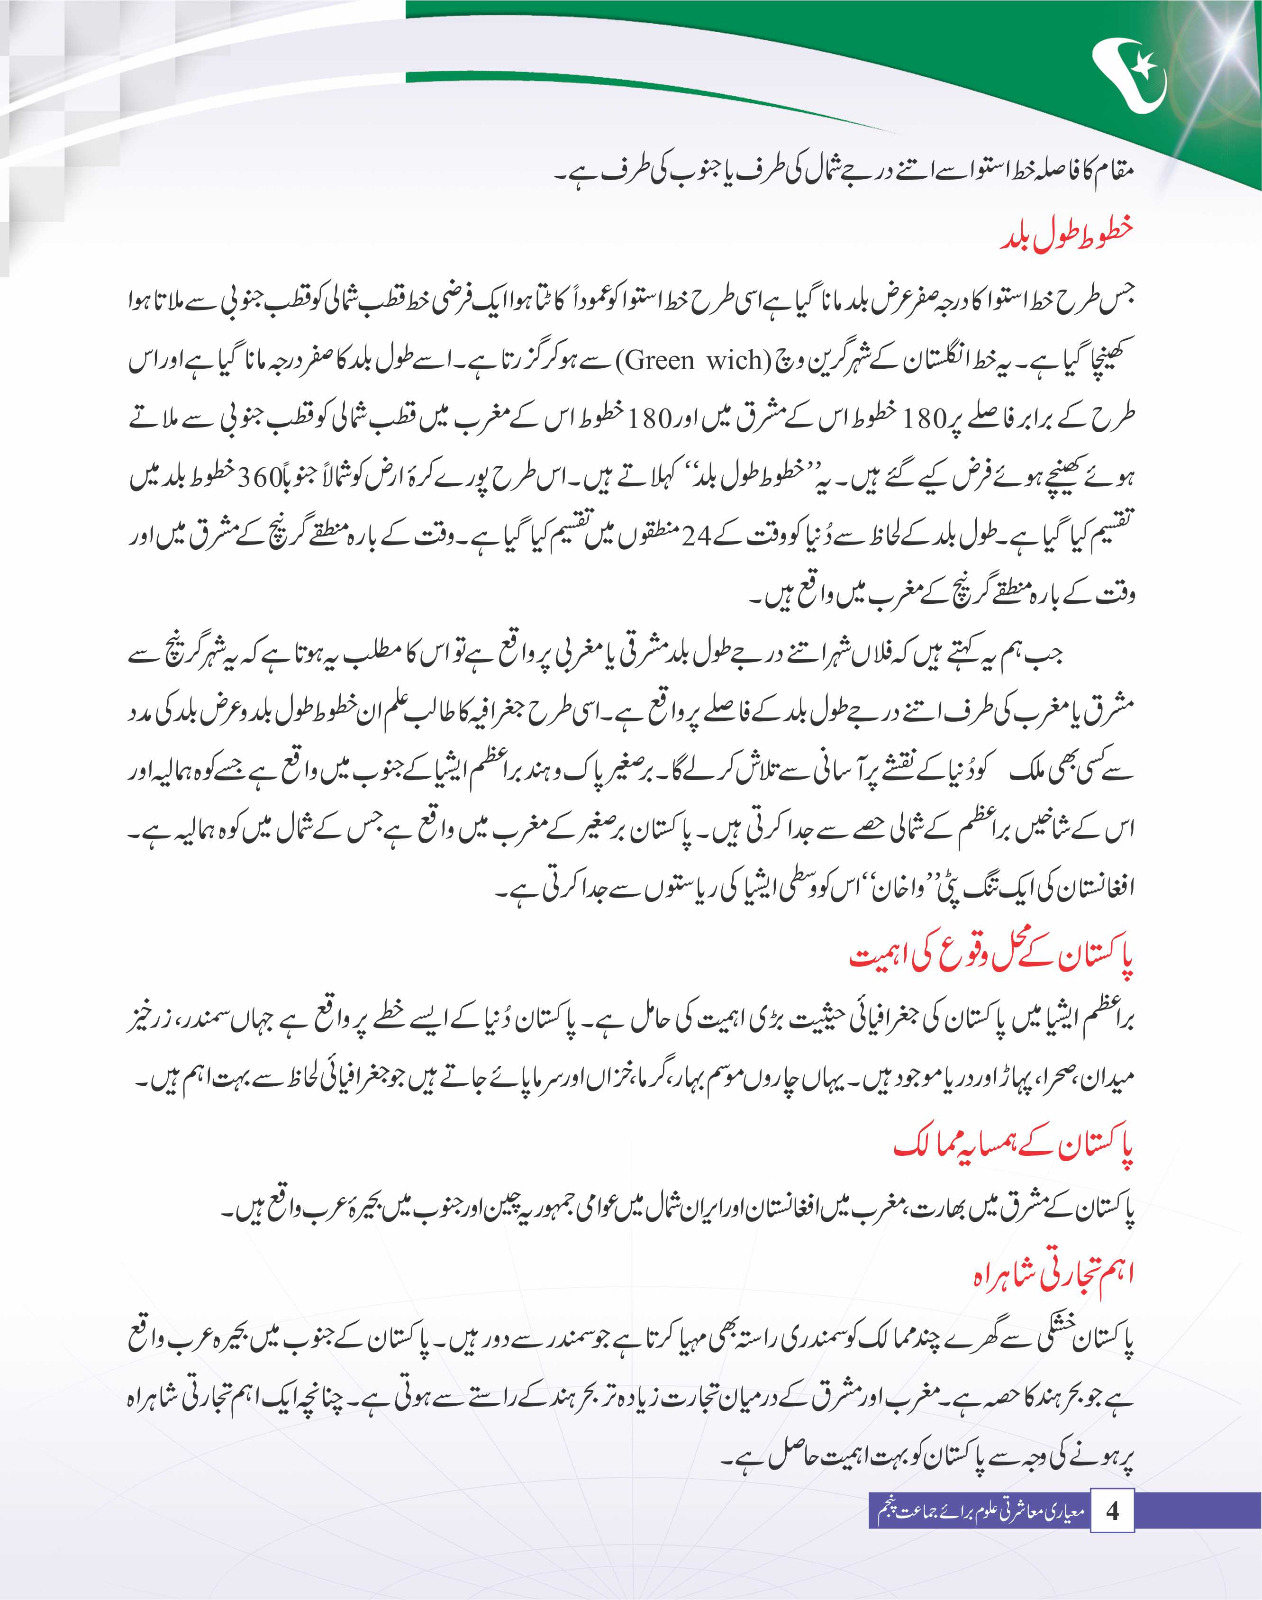 مقام کا فاصلہ خط استوا سے اتنے درجے شمال کی طرف یا جنوب کی طرف ہے۔
خطوط طول بلد
جس طرح خط استوا کا درجہ صفر عرض بلد مانا گیا ہے اسی طرح خط استوا کو عموداً کاٹتا ہوا ایک فرضی خط قطب شمالی کو قطب جنوبی سے ملاتا ہوا
کھینچا گیا ہے۔ یہ خط انگلستان کے شہر گرین وچ (Green wich) سے ہو کر گزرتا ہے۔ اسے طول بلد کا صفر درجہ مانا گیا ہے اور اس
طرح کے برابر فاصلے پر 180 خطوط اس کے مشرق میں اور 180 خطوط اس کے مغرب میں قطب شمالی کو قطب جنوبی سے ملاتے
ہوئے کھینچے ہوئے فرض کیے گئے ہیں۔ یہ ’’خطوط طول بلد‘‘ کہلاتے ہیں۔ اس طرح پورے کرۂ ارض کو شمالاً جنوباً 360 خطوط بلد میں
تقسیم کیا گیا ہے۔ طول بلد کے لحاظ سے دُنیا کو وقت کے 24 منطقوں میں تقسیم کیا گیا ہے۔ وقت کے بارہ منطقے گرینچ کے مشرق میں اور
وقت کے بارہ منطقے گرینچ کے مغرب میں واقع ہیں۔
جب ہم یہ کہتے ہیں کہ فلاں شہر اتنے درجے طول بلد مشرقی یا مغربی پر واقع ہے تو اس کا مطلب یہ ہوتا ہے کہ یہ شہر گرینچ سے
مشرق یا مغرب کی طرف اتنے درجے طول بلد کے فاصلے پر واقع ہے۔ اسی طرح جغرافیہ کا طالب علم ان خطوط طول بلد و عرض بلد کی مدد
سے کسی بھی ملک کو دُنیا کے نقشے پر آسانی سے تلاش کر لے گا۔ برصغیر پاک و ہند براعظم ایشیا کے جنوب میں واقع ہے جسے کوہ ہمالیہ اور
اس کے شاخیں براعظم کے شمالی حصے سے جدا کرتی ہیں۔ پاکستان برصغیر کے مغرب میں واقع ہے جس کے شمال میں کوہ ہمالیہ ہے۔
افغانستان کی ایک تنگ پٹی ’’واخان‘‘ اس کو وسطی ایشیا کی ریاستوں سے جدا کرتی ہے۔
پاکستان کے محل وقوع کی اہمیت
براعظم ایشیا میں پاکستان کی جغرافیائی حیثیت بڑی اہمیت کی حامل ہے۔ پاکستان دُنیا کے ایسے خطے پر واقع ہے جہاں سمندر، زرخیز
میدان، صحرا، پہاڑ اور دریا موجود ہیں۔ یہاں چاروں موسم بہار، گرما، خزاں اور سرما پائے جاتے ہیں جو جغرافیائی لحاظ سے بہت اہم ہیں۔
پاکستان کے ہمسایہ ممالک
پاکستان کے مشرق میں بھارت، مغرب میں افغانستان اور ایران شمال میں عوامی جمہوریہ چین اور جنوب میں بحیرۂ عرب واقع ہیں۔
اہم تجارتی شاہراہ
پاکستان خشکی سے گھرے چند ممالک کو سمندری راستہ بھی مہیا کرتا ہے جو سمندر سے دور ہیں۔ پاکستان کے جنوب میں بحیرہ عرب واقع
ہے جو بحر ہند کا حصہ ہے۔ مغرب اور مشرق کے درمیان تجارت زیادہ تر بحر ہند کے راستے سے ہوتی ہے۔ چنانچہ ایک اہم تجارتی شاہراہ
پر ہونے کی وجہ سے پاکستان کو بہت اہمیت حاصل ہے۔
4 معیاری معاشرتی علوم برائے جماعت پنجم